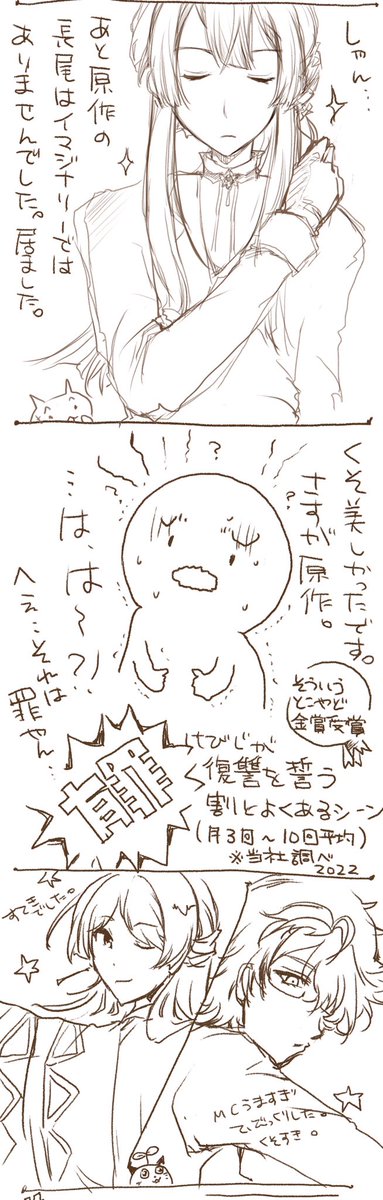 しゃん…
あと原作の
長尾はイマジナリーでは
ありませんでした。居ました。
くそ美しかったです。
さすが原作。
…は、は〜?!
へぇ…それは
罪やん…
そういう
とこやど
金賞受賞
有罪
さびじが
復讐を誓う
割とよくあるシーン
(月3回〜10回平均)
※当社調べ
2022
すてきでした。
MCうますぎ
てびっくりした。
くそすき。